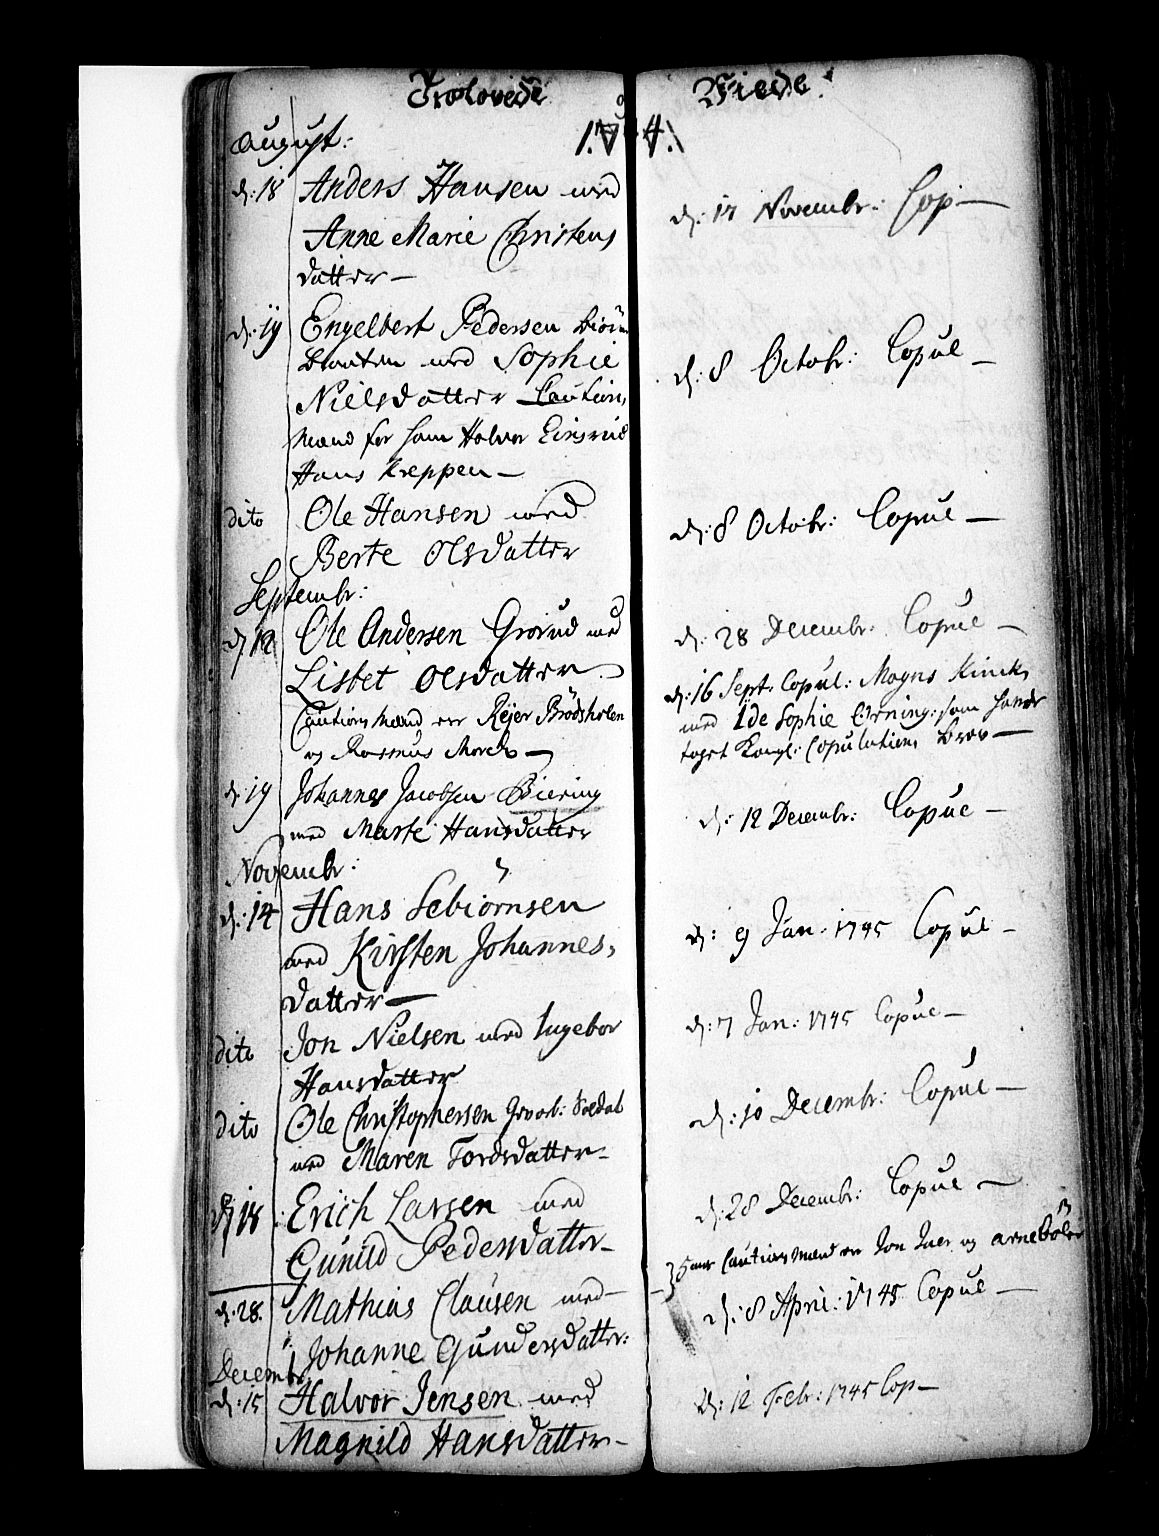 Trolovede og Viede
1744.
August:
d: 18 Anders Hansen med
Anne Marie Christens
datter —
d: 17 Novembr: Cop —
d: 19 Engelbert Pedersen
med Sophie
Nielsdatter Cautions
Mænd for ham Halvor
Hans Kreppen —
d: 8 Octobr: Copul —
dito Ole Hansen med
Berte Olsdatter
d: 8 Octobr: Copul —
Septembr:
d 12 Ole Andersen Grorud med
Lisbet Olsdatter
Cautions Mænd er Rejer Brödsholen
og Rasmus Morch —
d: 28 Decembr: Copul —
d: 16 Sept: Copul: Magns Kinck
med Ide Sophie Örning: som hafver
taget Kongl: Copulations brev —
d: 19 Johannes Jacobsen Biering
med Marte Hansdatter
d: 12 Decembr: Copul —
Novembr:
d: 14 Hans Sebiörnsen
med Kirsten Johannes,
datter —
d: 9 Jan: 1745 Copul —
dito Jon Nielsen med Ingebor
Hansdatter
d: 7 Jan: 1745 Copul —
dito Ole Christophersen Gevorb: Soldat
med Maren Tordsdatter —
d: 10 Decembr: Copul —
d 18 Erich Larsen med
Gunild Pedersdatter —
d: 28 Decembr: Copul —
Cautions Mænd er Jon og arne Böler
d: 28. Mathias Clausen med —
Johanne Gundersdatter:
d: 8 April: 1745 Copul —
Decembr
d: 15 Halvor Jensen med
Magnild Hansdatter —
d: 12 Febr: 1745 Cop —